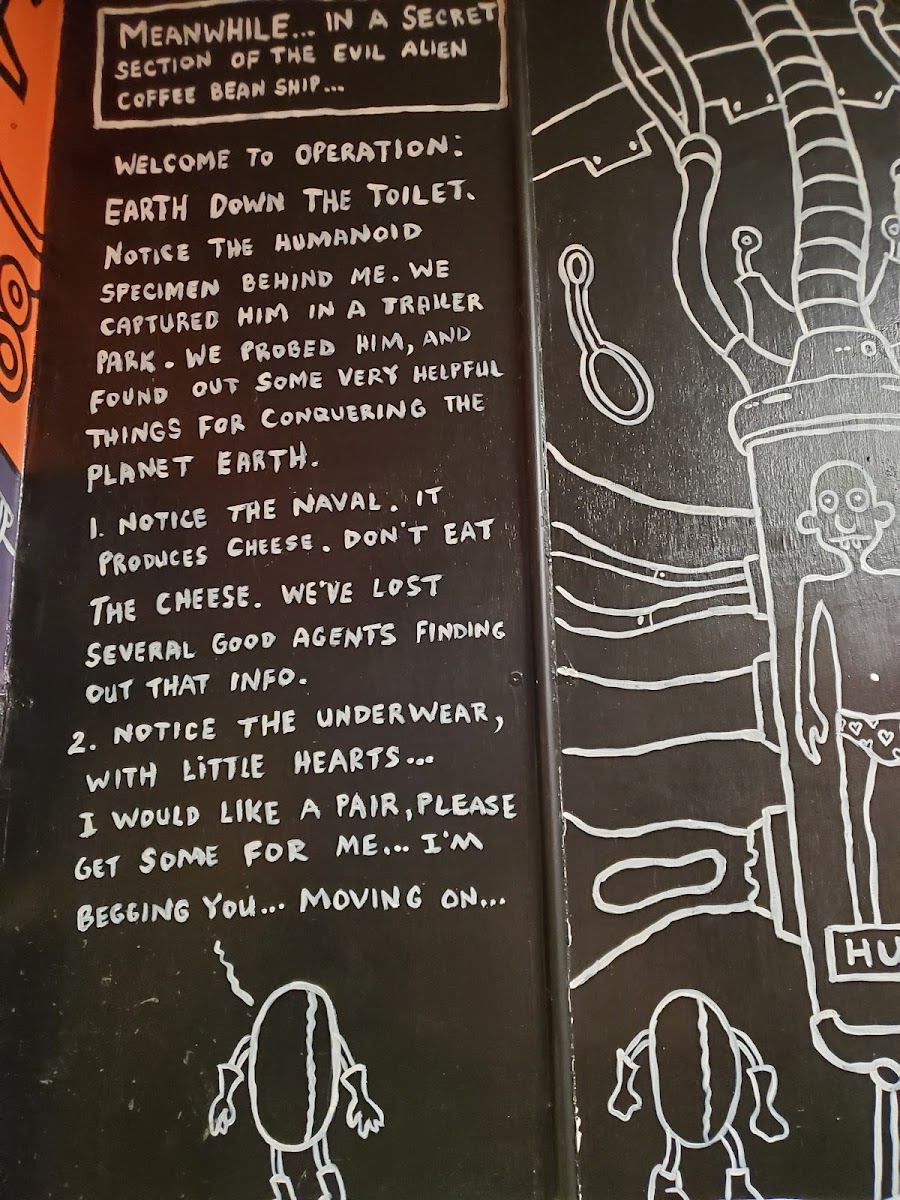 MEANWHILE... IN A SECRET
SECTION OF THE EVIL ALIEN
COFFEE BEAN SHIP...
WELCOME TO OPERATION:
EARTH DOWN THE TOILET.
NOTICE THE HUMANOID
SPECIMEN BEHIND ME. WE
CAPTURED HIM IN A TRAILER
PARK. WE PROBED HIM, AND
FOUND OUT SOME VERY HELPFUL
THINGS FOR CONQUERING THE
PLANET EARTH.
1. NOTICE THE NAVAL. IT
PRODUCES CHEESE. DON'T EAT
THE CHEESE. WE'VE LOST
SEVERAL GOOD AGENTS FINDING
OUT THAT INFO.
2. NOTICE THE UNDERWEAR,
WITH LITTLE HEARTS...
I WOULD LIKE A PAIR, PLEASE
GET SOME FOR ME... I'M
BEGGING YOU... MOVING ON...
HU